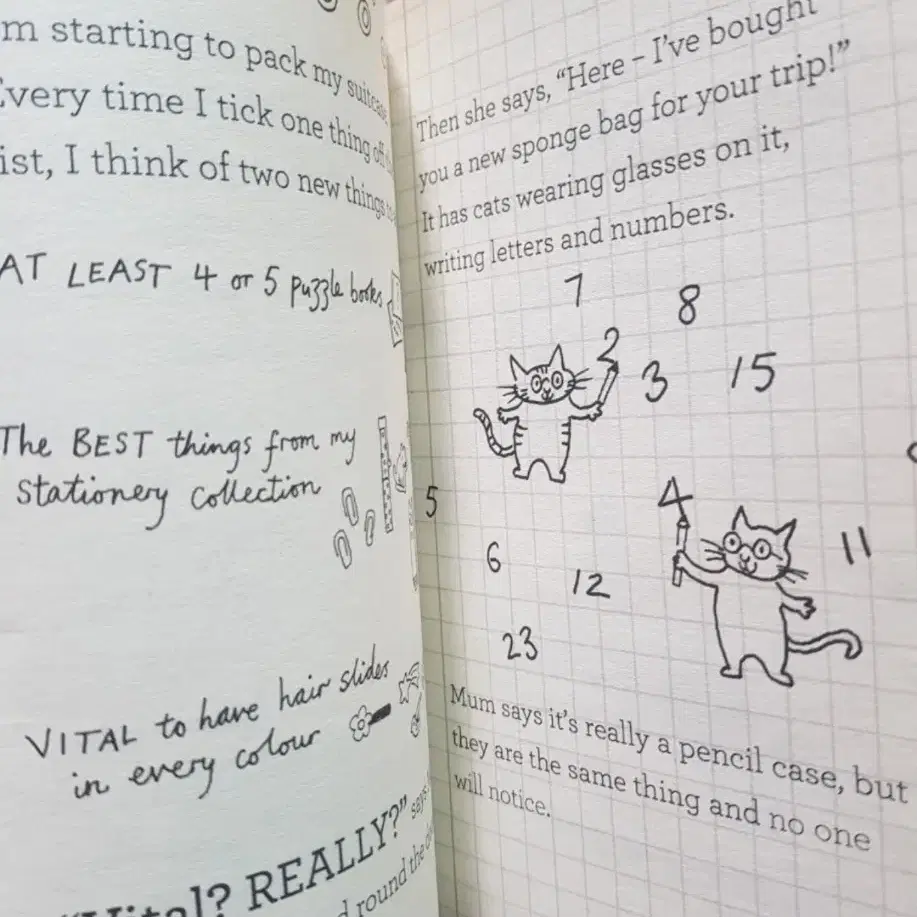 m starting to pack my suitcase
Every time I tick one thing off
ist, I think of two new things
AT LEAST 4 or 5 puzzle books
The BEST things from my
Stationery collection
VITAL to have hair slides
in every colour
REALLY?" says
round the
Then she says, “Here – I’ve bought
you a new sponge bag for your trip!”
It has cats wearing glasses on it,
writing letters and numbers.
7
8
2
3
15
5
4
6
12
11
23
Mum says it’s really a pencil case, but
they are the same thing and no one
will notice.